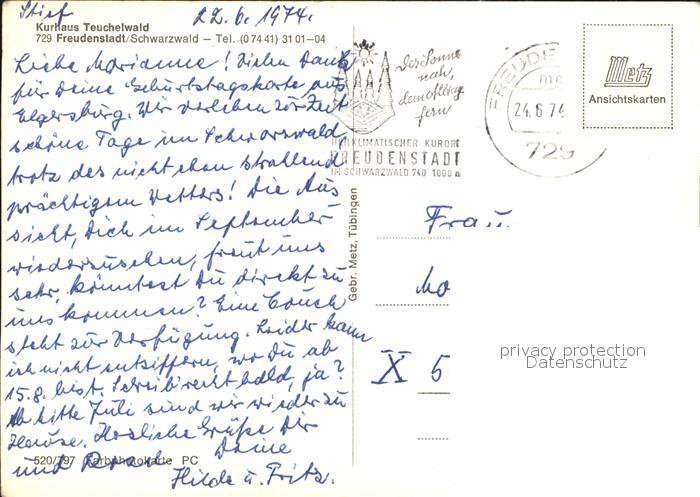 Stief 22.6.1974.
Kurhaus Teuchelwald
729 Freudenstadt/Schwarzwald – Tel. (0 74 41) 31 01–04
Liebe Marianne! Vielen Dank
für Deine Geburtstagskarte aus
Elgersburg. Wir verleben zur Zeit
schöne Tage im Schwarzwald
trotz des nicht eben strahlend
prächtigem Wetters! Die Aus
sicht, Dich im September
wiederzusehen, freut uns
sehr. Könntest Du direkt zu
uns kommen? Eine Couch
steht zur Verfügung. Leider kann
ich nicht entziffern, wo Du ab
15.8. bist. Schreib recht bald, ja?
Ab Mitte Juli sind wir wieder zu
Hause. Herzliche Grüße Dir
und Deine
Hilde u. Fritz.
520/797 Farbphotokarte PC
Gebr. Metz, Tübingen
Der Sonne
nah,
dem Alltag
fern
HEILKLIMATISCHER KURORT
FREUDENSTADT
IM SCHWARZWALD 740 1000 m
FREUDE
24.6.74
729
Metz
Ansichtskarten
Frau
X 5
privacy protection
Datenschutz